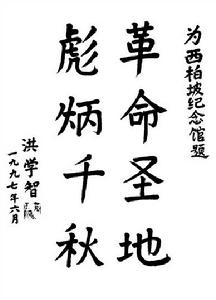 为西柏坡纪念馆题
革命圣地
彪炳千秋
洪学智
一九九七年六月